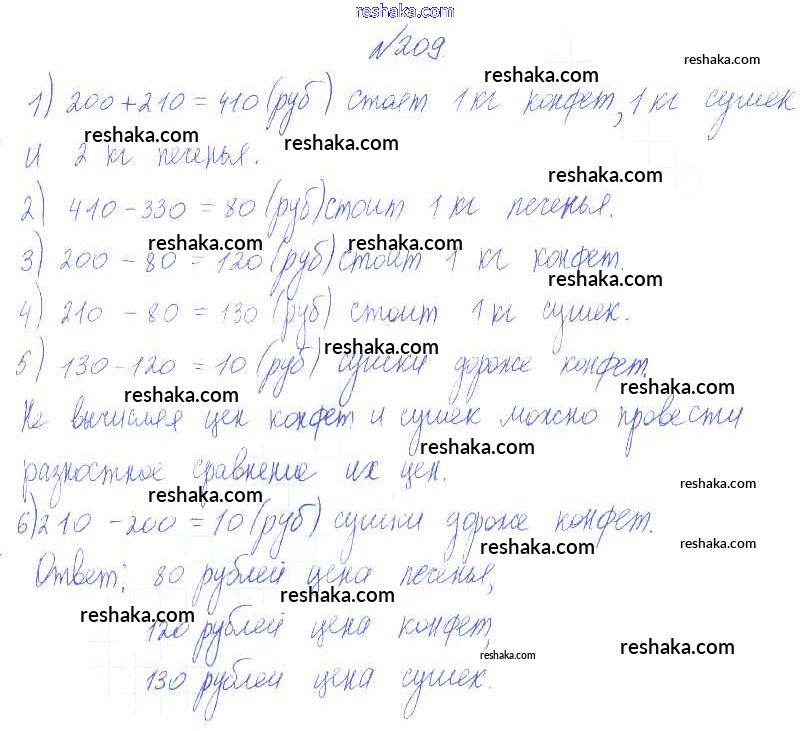 reshaka.com
№209.
reshaka.com
reshaka.com
1) 200+210=410(руб) стоит 1кг конфет, 1кг сушек
reshaka.com
reshaka.com
и 2 кг печенья.
reshaka.com
2) 410-330=80(руб)стоит 1кг печенья.
reshaka.com
reshaka.com
3) 200-80=120(руб)стоит 1 кг конфет.
reshaka.com
4) 210-80=130(руб) стоит 1кг сушек.
reshaka.com
5) 130-120=10(руб) сушки дороже конфет.
reshaka.com
reshaka.com
Не вычисляя цен конфет и сушек можно провести
reshaka.com
разностное сравнение их цен.
reshaka.com
reshaka.com
6)210-200=10(руб) сушки дороже конфет.
reshaka.com
reshaka.com
Ответ: 80 рублей цена печенья,
reshaka.com
reshaka.com
120 рублей цена конфет,
reshaka.com
reshaka.com
130 рублей цена сушек.